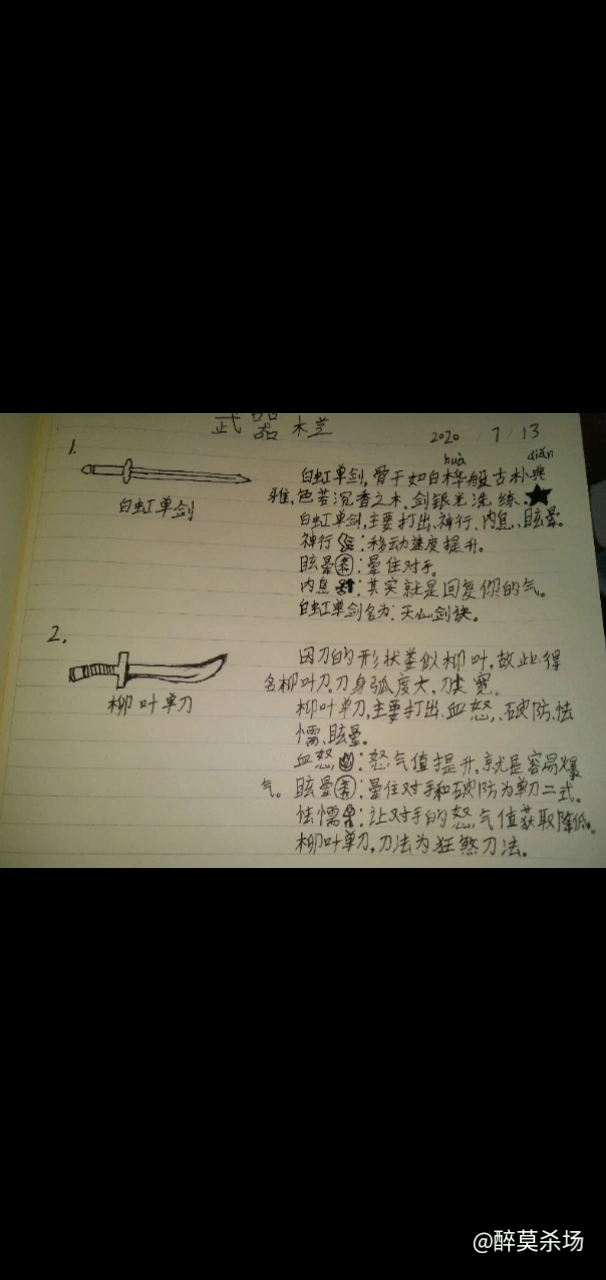 武器
2020 / 7 / 13
1.
白虹单剑
huà diǎn
白虹单剑,骨干如白桦般古朴典
雅,色若沉香之木.剑银光洗练.★
白虹单剑,主要打出、神行、内息、眩晕.
神行:移动速度提升。
眩晕:晕住对手。
内息:其实就是回复你的气。
白虹单剑名为:天山剑诀。
2.
柳叶单刀
因刀的形状类似柳叶,故此得
名柳叶刀.刀身弧度大,刀尖宽。
柳叶单刀,主要打出、血怒、破防、怯
懦、眩晕。
血怒:怒气值提升,就是容易爆
气。眩晕:晕住对手和破防为单刀二式。
怯懦:让对手的怒气值获取降低。
柳叶单刀,刀法为狂煞刀法。
@醉莫杀场